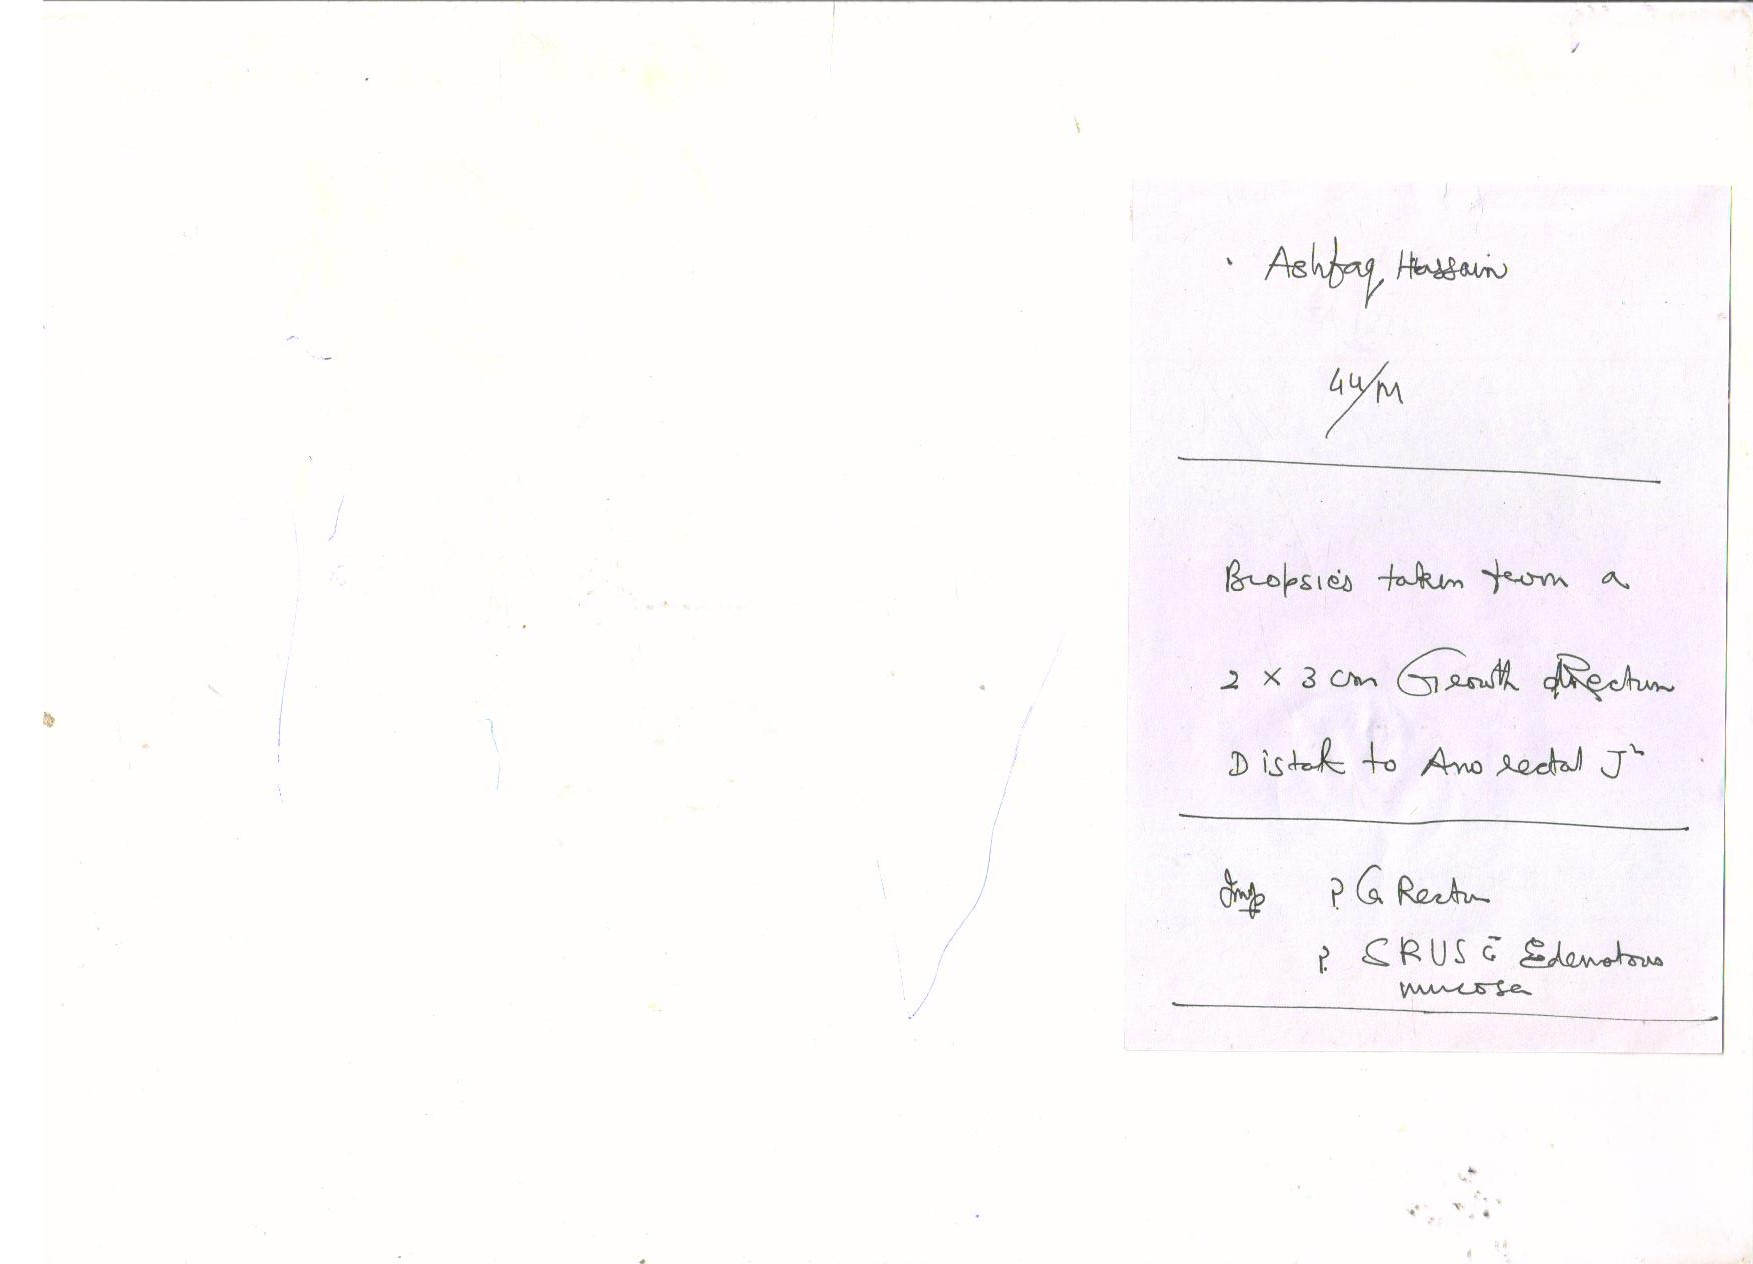 Ashfaq Hassain
44/M
Biopsies taken from a
2 x 3 cm Growth Rectum
Distal to Ano rectal Jn
Imp ? Ca Rectm
? SRUS c̄ Edematous
mucosa